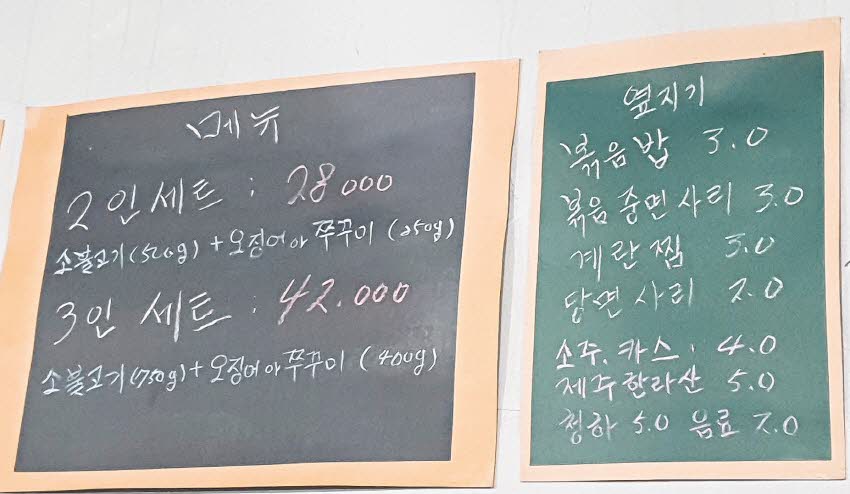 메뉴
2인세트 : 28000
소불고기(520g) + 오징어아쭈꾸미 (250g)
3인 세트 : 42.000
소불고기(750g) + 오징어아쭈꾸미 (400g)
옆지기
볶음밥 3.0
볶음 중면 사리 3.0
계란찜 3.0
당면 사리 2.0
소주. 카스. 4.0
제주한라산 5.0
청하 5.0 음료 2.0